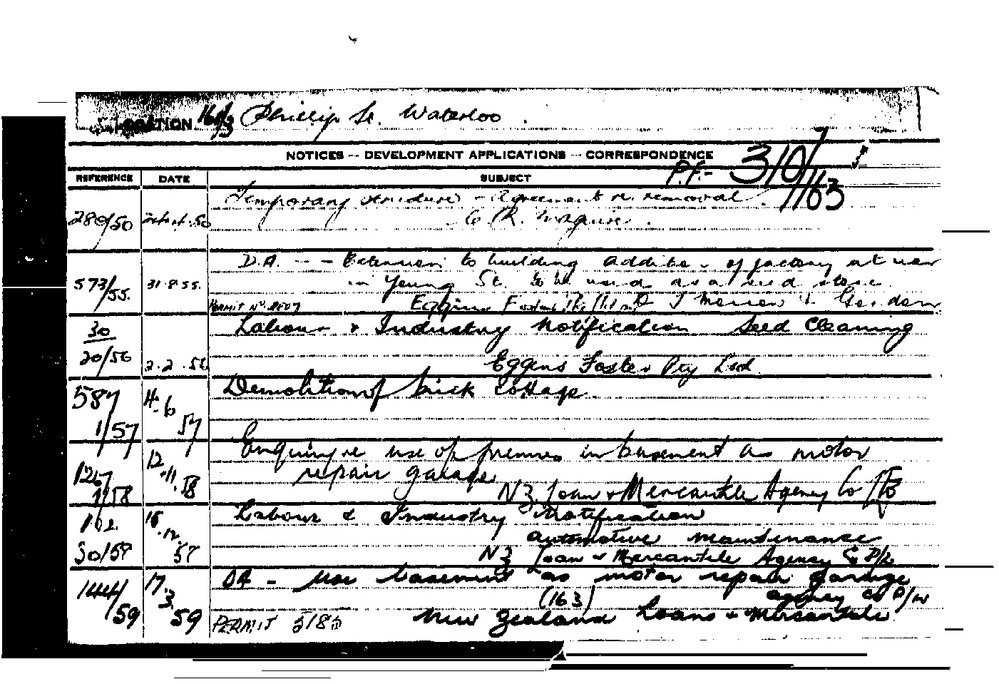 LOCATION 160/3 Phillip St. Waterloo.
NOTICES -- DEVELOPMENT APPLICATIONS -- CORRESPONDENCE
P.F.- 310/1163
REFERENCE DATE SUBJECT
Temporary structure - Agreement re removal.
280/50 .50 R. Maguire.
D.A. -- Extension to building addition of factory at rear
573/55. 31.8.55. in Young St. to be used as a seed store
PERMIT No. 8807 Eggins Foster
30 Labour & Industry Notification Seed Cleaning
20/56 2.2.56 Eggins Foster Pty Ltd.
587 4.6 Demolition of brick cottage.
1/57 57
Enquiry re use of premises in basement as motor
1267 12.11.58 repair garage
1/58 NZ. Loan & Mercantile Agency Co P/L
102 15.12. Labour & Industry Notification
automotive maintenance
30/59 NZ Loan & Mercantile Agency Co P/L
1444 17.3. DA - use basement as motor repair garage
(163) agency co
/59 59 PERMIT New Zealand Loans & Mercantile